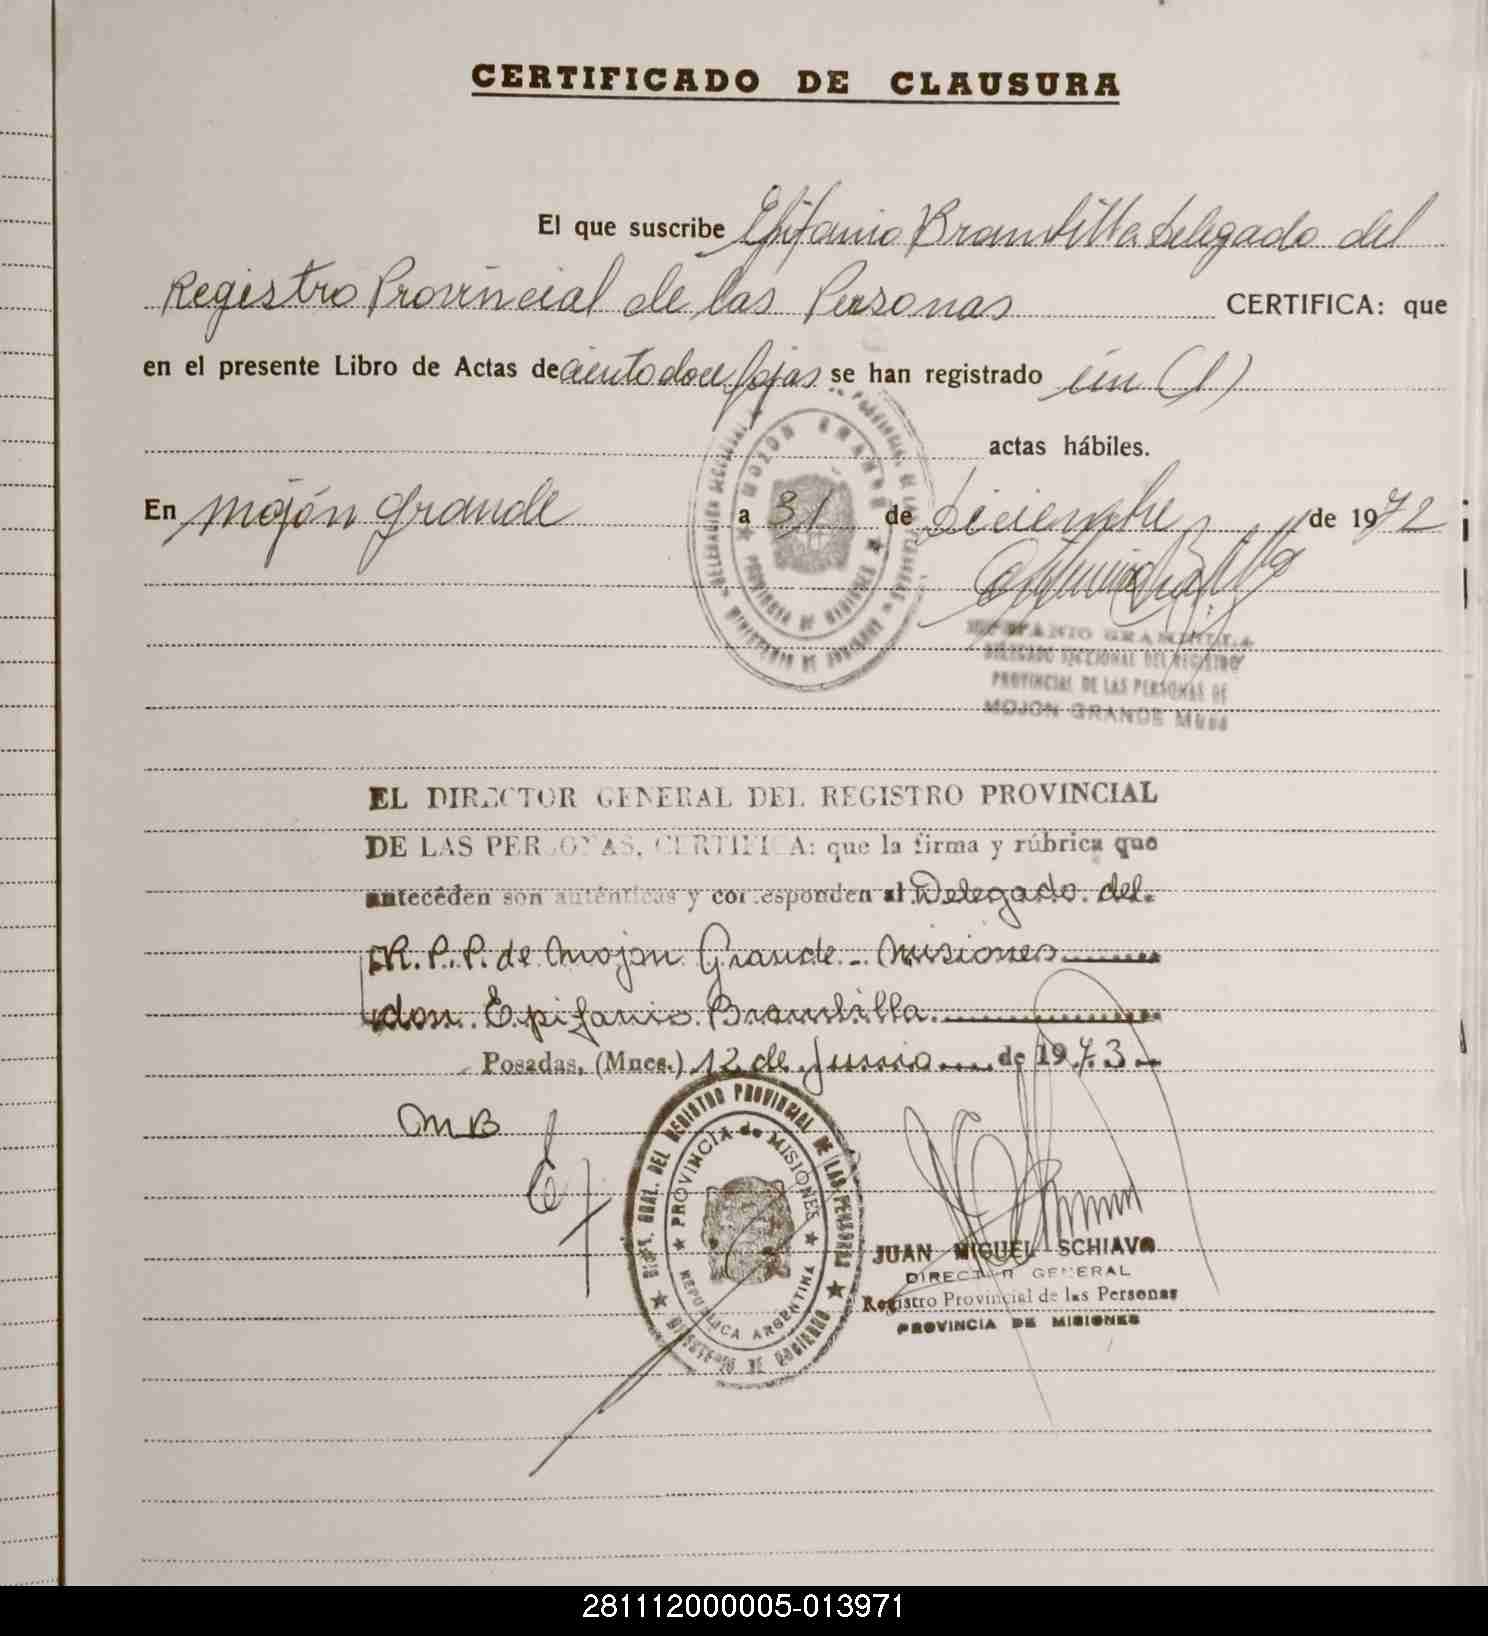 CERTIFICADO DE CLAUSURA
El que suscribe Epifanio Brambilla Delegado del
Registro Provincial de las Personas CERTIFICA: que
en el presente Libro de Actas de ciento doce fojas se han registrado un (1)
actas hábiles.
En Mojón Grande a 31 de Diciembre de 1972
EPIFANIO BRAMBILLA
DELEGADO SECCIONAL DEL REGISTRO
PROVINCIAL DE LAS PERSONAS DE
MOJON GRANDE Mnes
EL DIRECTOR GENERAL DEL REGISTRO PROVINCIAL
DE LAS PERSONAS, CERTIFICA: que la firma y rúbrica que
anteceden son auténticas y corresponden al Delegado del
R.P.P. de Mojon Grande - Misiones
don Epifanio Brambilla
Posadas, (Mnes.) 12 de Junio de 1973
MB
DIR. GRAL. DEL REGISTRO PROVINCIAL DE LAS PERSONAS
PROVINCIA de MISIONES
REPUBLICA ARGENTINA
MINISTERIO DE GOBIERNO
JUAN MIGUEL SCHIAVO
DIRECTOR GENERAL
Registro Provincial de las Personas
PROVINCIA DE MISIONES
281112000005-013971